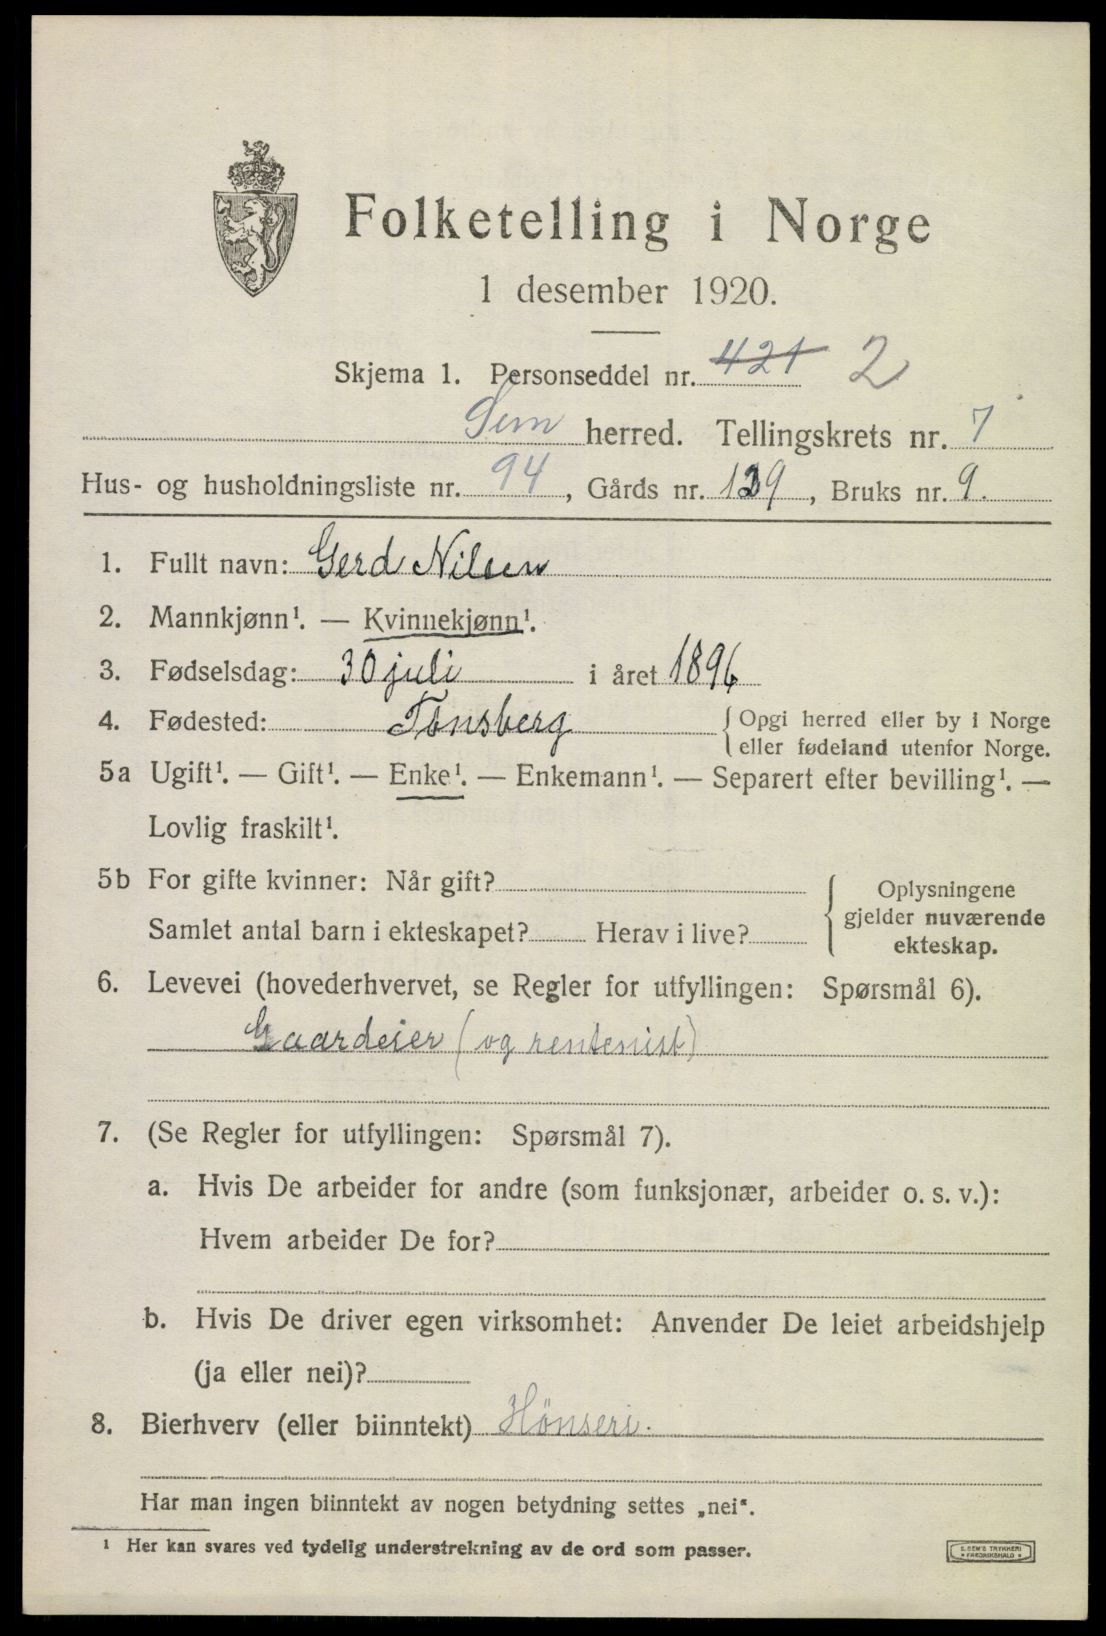 Folketelling i Norge
1 desember 1920.
Skjema 1. Personseddel nr. 421 2
Sem herred. Tellingskrets nr. 7
Hus- og husholdningsliste nr. 94, Gårds nr. 139, Bruks nr. 9.
1. Fullt navn: Gerd Nilsen
2. Mannkjønn¹. — Kvinnekjønn¹.
3. Fødselsdag: 30 juli i året 1896
4. Fødested: Tønsberg {Opgi herred eller by i Norge
eller fødeland utenfor Norge.
5a Ugift¹. — Gift¹. — Enke¹. — Enkemann¹. — Separert efter bevilling¹. —
Lovlig fraskilt¹.
5b For gifte kvinner: Når gift?
Samlet antal barn i ekteskapet? Herav i live?
Oplysningene
gjelder nuværende
ekteskap.
6. Levevei (hovederhvervet, se Regler for utfyllingen: Spørsmål 6).
Gaardeier (og rentenist)
7. (Se Regler for utfyllingen: Spørsmål 7).
a. Hvis De arbeider for andre (som funksjonær, arbeider o. s. v.):
Hvem arbeider De for?
b. Hvis De driver egen virksomhet: Anvender De leiet arbeidshjelp
(ja eller nei)?
8. Bierhverv (eller biinntekt) Hönseri.
Har man ingen biinntekt av nogen betydning settes „nei".
¹ Her kan svares ved tydelig understrekning av de ord som passer.
E. SEM'S TRYKKERI
FREDRIKSHALD